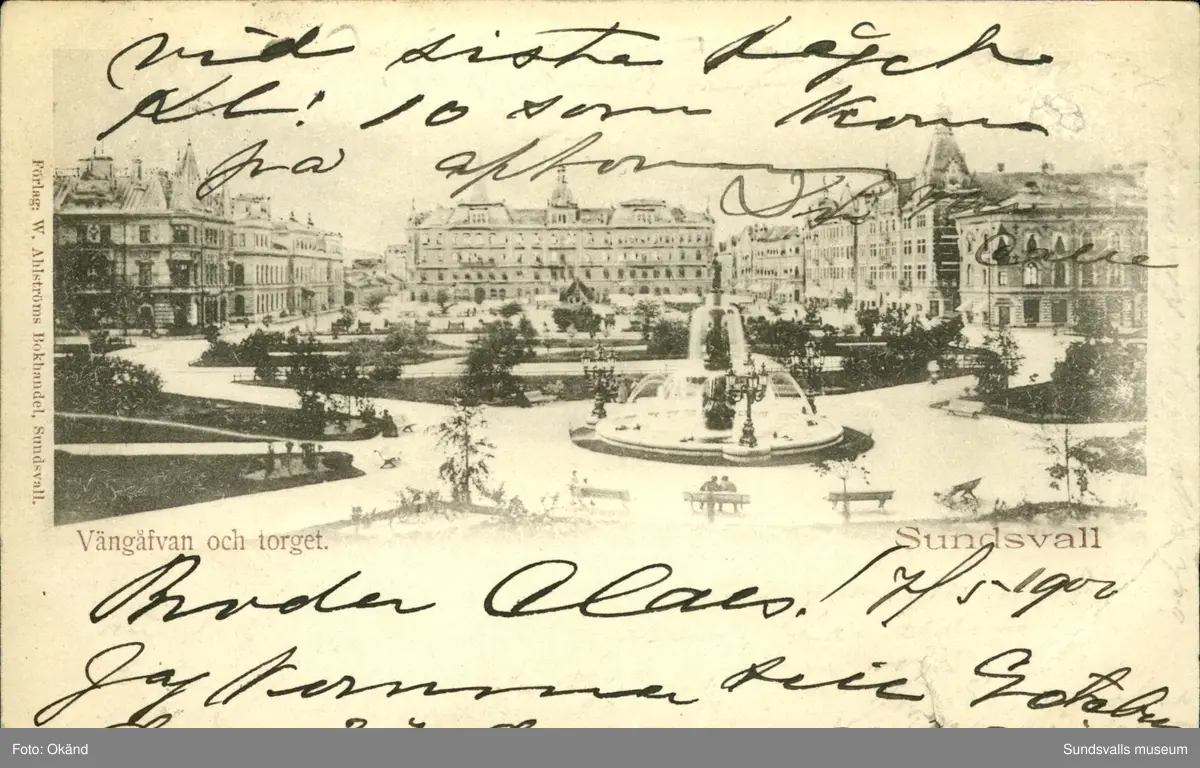 vid sista
Kl! 10 som kom
på
Förlag: W. Ahlströms Bokhandel, Sundsvall.
Vängåfvan och torget.
Sundsvall
Broder Claes! 17/5 1900
Jag kommer till Göteb
Foto: Okänd
Sundsvalls museum